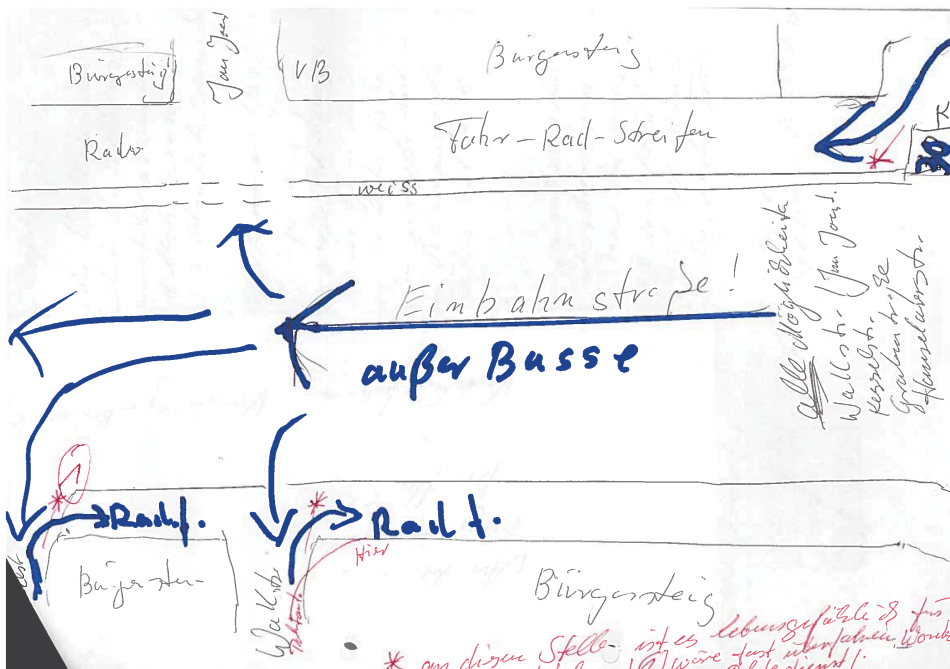 Bürgersteig
Jan Joest
VB
Bürgersteig
Radw
Fahr-Rad-Streifen
*
30
weiss
Einbahnstraße!
außer Busse
alle Möglichkeiten
Wallstr. / Jan Joest.
Kesselstr.
Grabenstraße
Hanselaerstr.
1
*
Radf.
*
Radf.
Hier
Bürgerstei-
Wallstr
Bürgersteig
* an diesen Stelle ist es lebensgefährlich für
1 wäre fast überfahren worden